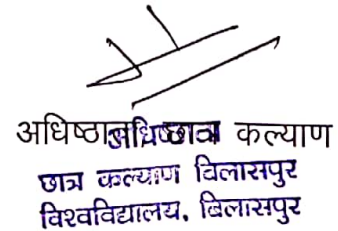 अधिष्ठाता छात्र कल्याण
छात्र कल्याण विलासपुर
विश्वविद्यालय, बिलासपुर